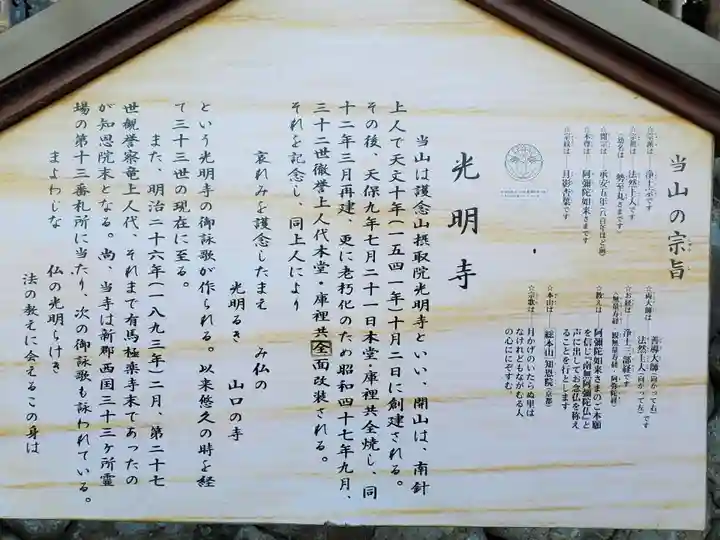 当山の宗旨
☆宗派は 浄土宗です
☆宗祖は 法然上人です
(幼名は 勢至丸さまです)
☆開宗は 承安五年
☆本尊は 阿弥陀如来さまです
☆宗紋は 月影杏葉です
☆両大師は 善導大師(向かって右)
法然上人(向かって左)です
☆お経は 浄土三部経です
(無量寿経・観無量寿経・阿弥陀経)
☆教えは 阿弥陀如来さまのご本願
を信じ「南無阿弥陀仏」と
声に出してお念仏を称え
ることを行とします
☆本山は 総本山 知恩院(京都)
☆宗歌は 月かげのいたらぬ里は
なけれどもながむる人
の心にぞすむ
光明寺
当山は護念山摂取院光明寺といい、開山は、南針
上人で天文十年(一五四一年)十月二日に創建される。
その後、天保九年七月二十一日本堂・庫裡共全焼し、同
十二年三月再建、更に老朽化のため昭和四十七年九月、
三十二世徹誉上人代本堂・庫裡共全面改装される。
それを記念し、同上人により
哀れみを護念したまえ み仏の
光明るき 山口の寺
という光明寺の御詠歌が作られる。以来悠久の時を経
て三十三世の現在に至る。
また、明治二十六年(一八九三年)二月、第二十七
世観誉察竜上人代、それまで有馬極楽寺末であったの
が知恩院末となる。尚、当寺は新郡西国三十三ヶ所霊
場の第十三番札所に当たり、次の御詠歌も詠われている。
まよわじな 仏の光明らけき
法の教えに会えるこの身は